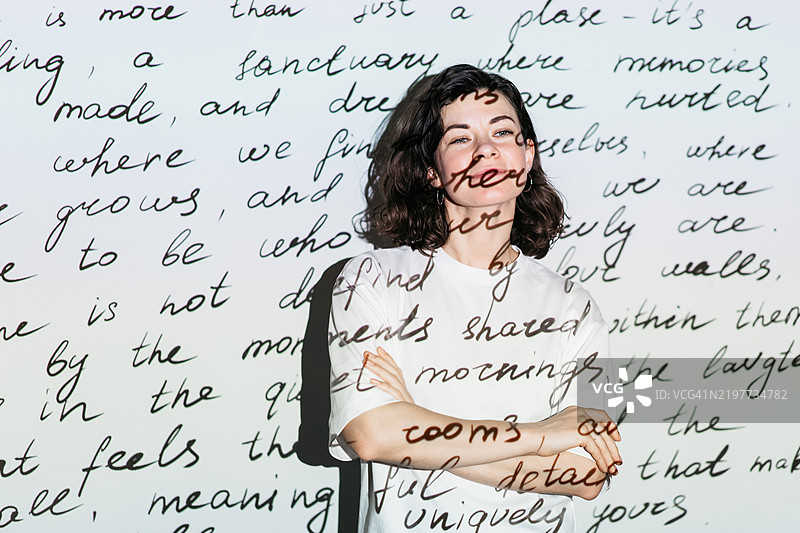 is more than just a place - it's a
ling, a sanctuary where memories
made, and dre are nurted.
where we fin ourselves, where
grows, and where we are
e to be who we truly are.
me is not defined by four walls,
by the moments shared within them
in the quiet mornings, the laughte
feels the rooms, and the
all, meaningful details that mak
uniquely yours
VCG
VCG.COM
ID: VCG41N2197734782